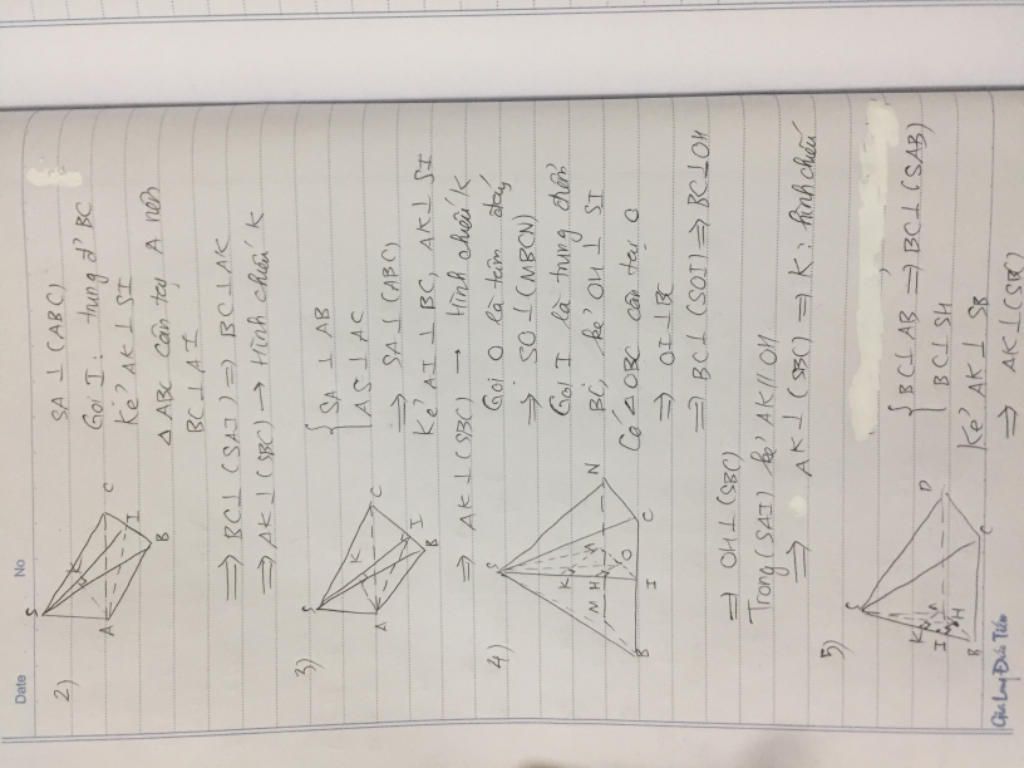 Date
No
2)
S
A
B
C
I
K
SA ⊥ (ABC)
Gọi I : trung đ' BC
Kẻ AK ⊥ SI
△ ABC cân tại A nên
BC ⊥ AI
⇒ BC ⊥ (SAI) ⇒ BC ⊥ AK
⇒ AK ⊥ (SBC) → Hình chiếu K
3)
S
A
B
C
I
K
{ SA ⊥ AB
AS ⊥ AC
⇒ SA ⊥ (ABC)
Kẻ AI ⊥ BC, AK ⊥ SI
⇒ AK ⊥ (SBC) → Hình chiếu K
4)
S
K
M
H
A
N
O
B
I
C
Gọi O là tâm đáy
⇒ SO ⊥ (MBCN)
Gọi I là trung điểm
BC, kẻ OH ⊥ SI
Có △ OBC cân tại O
⇒ OI ⊥ BC
⇒ BC ⊥ (SOI) ⇒ BC ⊥ OH
⇒ OH ⊥ (SBC)
Trong (SAI) kẻ AK // OH
⇒ AK ⊥ (SBC) ⇒ K : hình chiếu
5)
S
K
I
A
H
B
C
D
{ BC ⊥ AB ⇒ BC ⊥ (SAB)
BC ⊥ SH
Kẻ AK ⊥ SB
⇒ AK ⊥ (SBC)